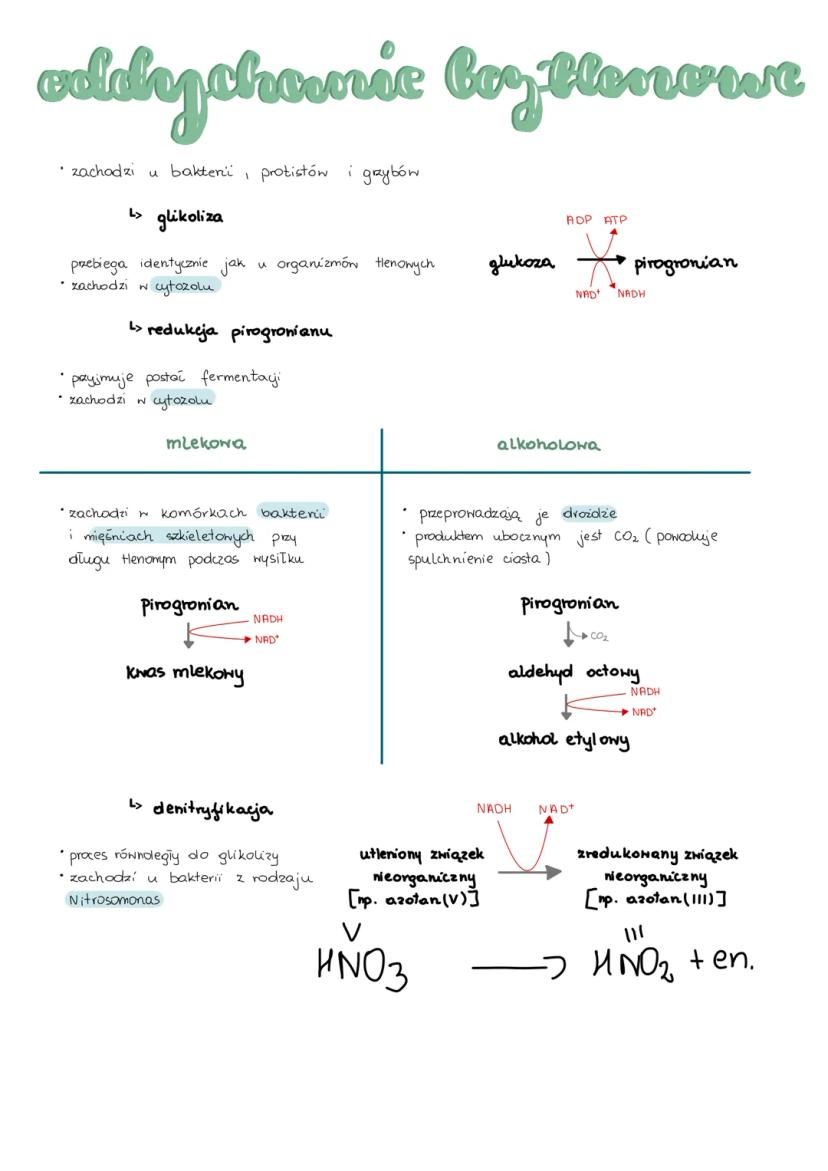 oddychanie beztlenowe
• zachodzi u bakterii, protistów i grzybów
↳ glikoliza
przebiega identycznie jak u organizmów tlenowych
• zachodzi w cytozolu
ADP ATP
glukoza → pirogronian
NAD⁺ NADH
↳ redukcja pirogronianu
• przyjmuje postać fermentacji
• zachodzi w cytozolu
mlekowa
• zachodzi w komórkach bakterii
i mięśniach szkieletowych przy
długu tlenowym podczas wysiłku
pirogronian
NADH
NAD⁺
kwas mlekowy
alkoholowa
• przeprowadzają je drożdże
• produktem ubocznym jest CO₂ (powoduje
spulchnienie ciasta)
pirogronian
CO₂
aldehyd octowy
NADH
NAD⁺
alkohol etylowy
↳ denitryfikacja
• proces równoległy do glikolizy
• zachodzi u bakterii z rodzaju
Nitrosomonas
NADH NAD⁺
utleniony związek
nieorganiczny
[np. azotan(V)]
zredukowany związek
nieorganiczny
[np. azotan(III)]
V III
HNO₃ → HNO₂ + en.